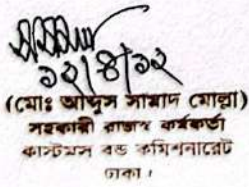 ১২/৪/১২
(মোঃ আব্দুস সামাদ মোল্লা)
সহকারী রাজস্ব কর্মকর্তা
কাস্টমস বন্ড কমিশনারেট
ঢাকা।